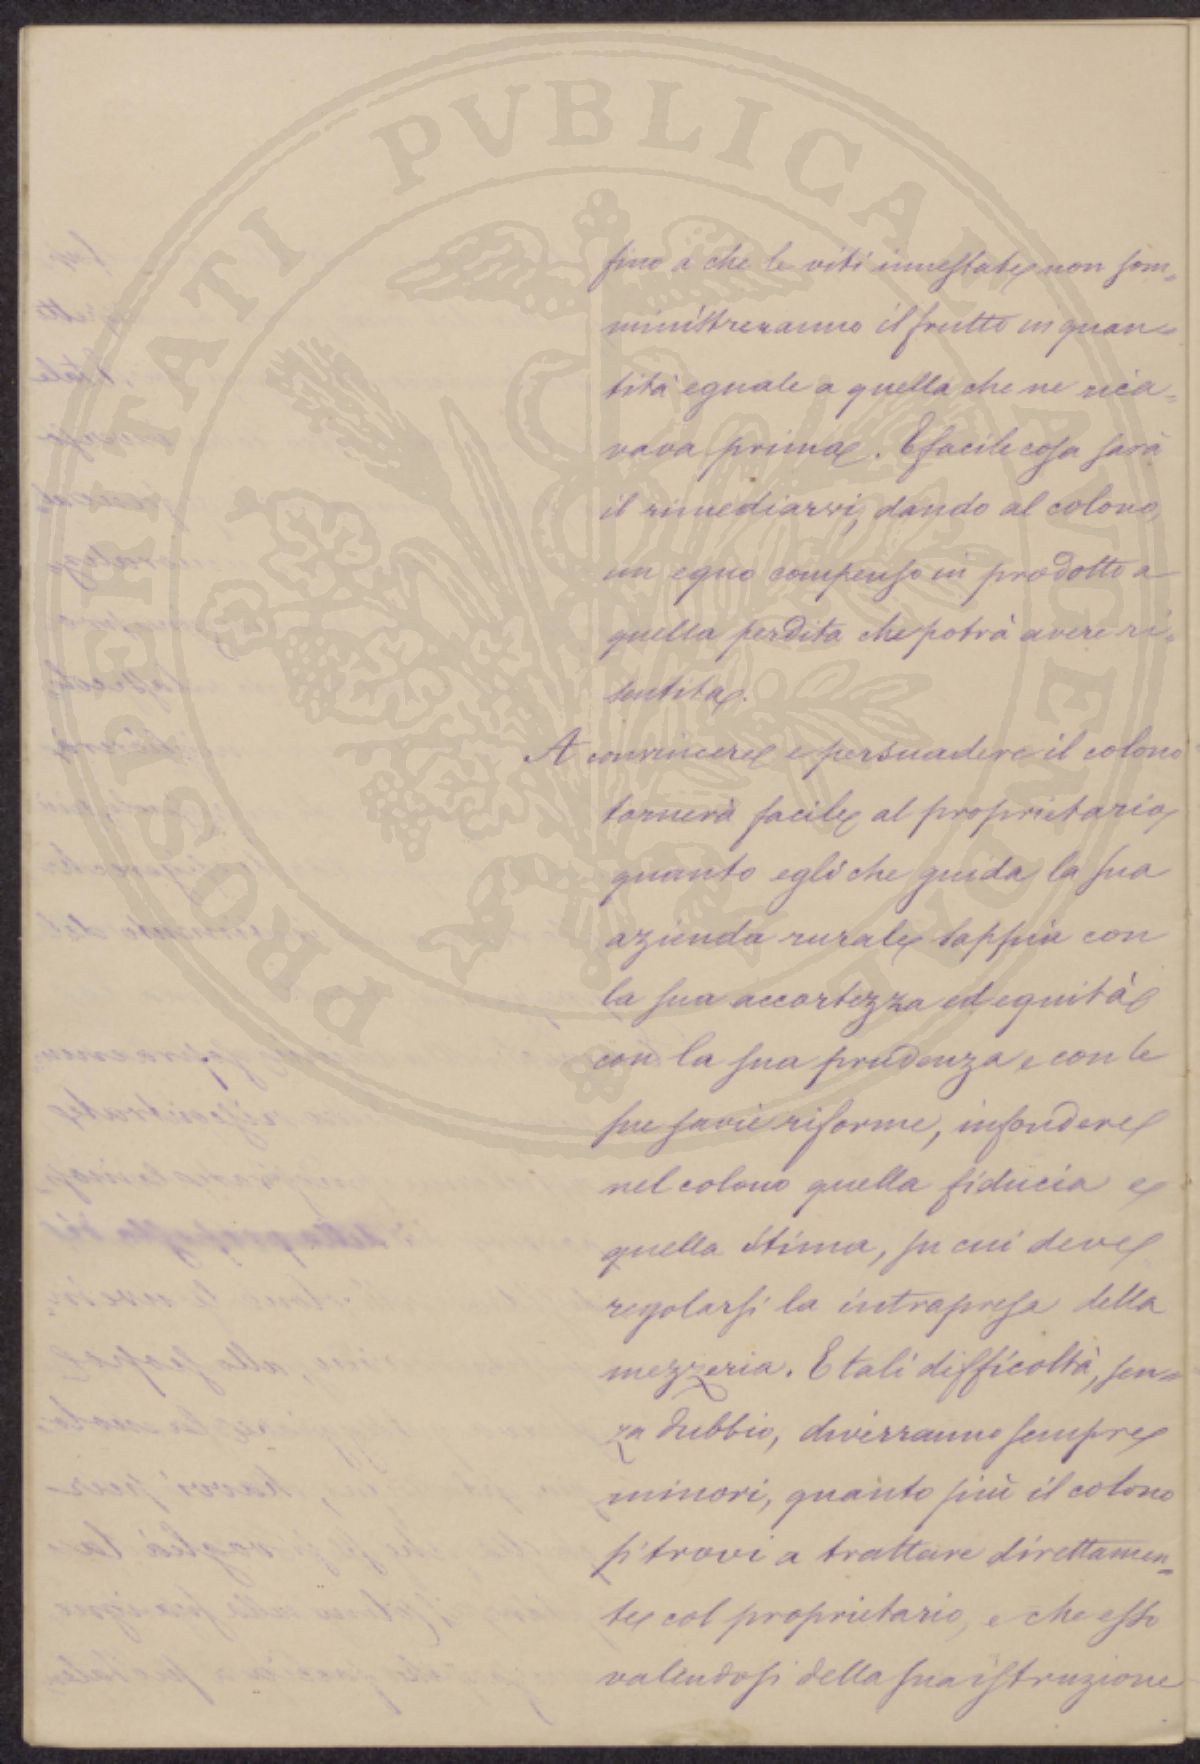 fino a che le viti innestate non som=
ministreranno il frutto in quan=
tità eguale a quella che ne rica=
vava prima. E facile cosa sarà
il rimediarvi, dando al colono,
un equo compenso in prodotto a
quella perdita che potrà avere ri=
sentita.
A convincere e persuadere il colono
tornerà facile al proprietario,
quanto egli che guida la sua
azienda rurale sappia con
la sua accortezza ed equità
con la sua prudenza e con le
sue savie riforme, infondere
nel colono quella fiducia e
quella stima, su cui deve
regolarsi la intrapresa della
mezzeria. E tali difficoltà, sen=
za dubbio, diverranno sempre
minori, quanto più il colono
si trovi a trattare direttamen=
te col proprietario, e che esso
valendosi della sua istruzione
PROSPERITATI PVBLICAE AVGENDAE